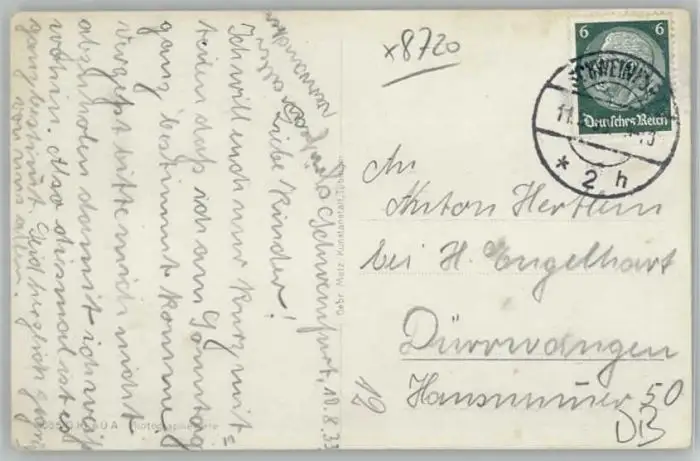 x8720
6 6
SCHWEINFURT
11.
Deutsches Reich
* 2 h
An
Anton Hertlein
bei H. Engelhart
Dürrwangen
Hausnummer 50
DB
12
Gebr. Metz, Kunstanstalt, Tübingen
Schweinfurt, 10.8.33
Liebe Kinder!
Ich will euch nur kurz mit=
teilen daß ich am Sonntag
ganz bestimmt komme.
Vergeßt bitte mich nicht
abzuholen damit ich weiß
wohin. Also diesmal ist es
ganz bestimmt. Seid herzlich
von uns allen.
A Photographie